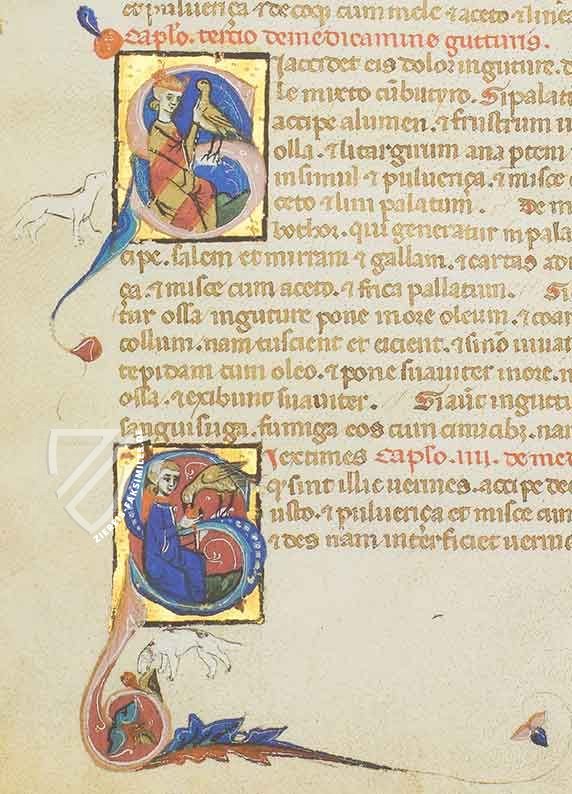 et puluerica et de coq cum melle et aceto et line
Caplo. tertio de medicamine gutturis.
Si accidet eis dolor in guture. d
le mixto cu butyro. Si palat
accipe alumen. et frustrum u
olla. et litargirum ana ptem
insimul et puluerica. et misce
ceto et lini palatum. De m
bothor. qui generatur in pala
cipe. salem et mirram et gallam. et cartas
ca. et misce cum aceto. et frica pallatium. Si
tur ossa in guture pone in ore oleum. et coar
collum. nam tuscient et eicient. et si no
tepidam cum oleo. et pone suauiter in ore. n
ossa. et exibunt suauiter. Si aut in gutu
sanguisuga. fumiga eos cum cimicibz. nam
Si extimes Caplo. IIII. de me
q sint illic uermes. accipe de
usto. et puluerica et misce cum
et des nam interficiet uerme
ZIEREIS FAKSIMILES